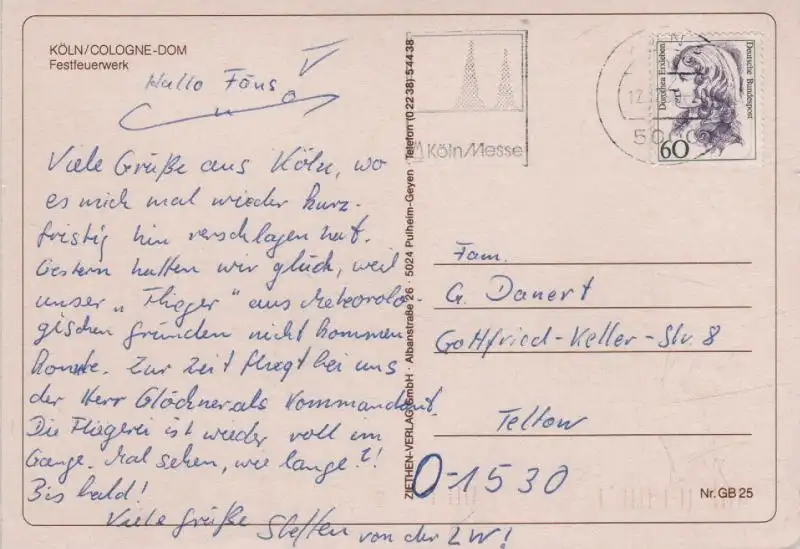 KÖLN/COLOGNE-DOM
Festfeuerwerk
Hallo
Viele Grüße aus Köln, wo
es mich mal wieder kurz-
fristig hin verschlagen hat.
Gestern hatten wir glück, weil
unser „Flieger“ aus Meteorolo-
gischen gründen nicht kommen
konnte. Zur Zeit fliegt bei uns
der Herr Glöckner als Kommandant.
Die Fliegerei ist wieder voll im
Gange. Mal sehen, wie lange?!
Bis bald!
Viele grüße Steffen von der LW!
ZIETHEN-VERLAG GmbH · Albanstraße 26 · 5024 Pulheim-Geyen · Telefon (0 22 38) 5 44 38
Köln/Messe
500
Dorothea Erxleben
Deutsche Bundespost
60
Fam.
G. Danert
Gottfried-Keller-Str. 8
Teltow
O-1530
Nr. GB 25